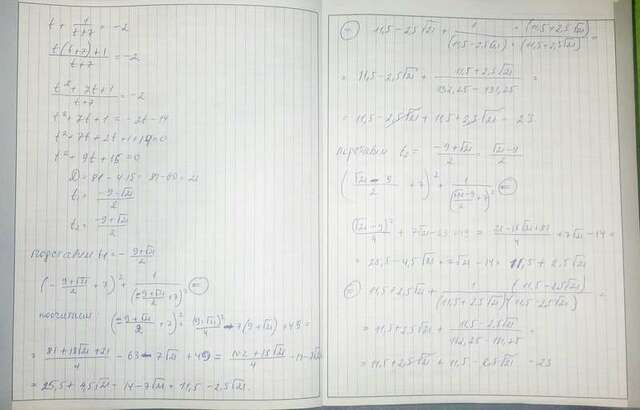 t + 1/(t+7) = -2
(t(t+7)+1)/(t+7) = -2
(t² + 7t + 1)/(t+7) = -2
t² + 7t + 1 = -2t - 14
t² + 7t + 2t + 1 + 14 = 0
t² + 9t + 15 = 0
D = 81 - 4·15 = 81 - 60 = 21
t₁ = (-9-√21)/2
t₂ = (-9+√21)/2
подставим t₁ = - (9+√21)/2
(- (9+√21)/2 + 7)² + 1/(- (9+√21)/2 + 7)² =
посчитаем: (- (9+√21)/2 + 7)² = (9+√21)²/4 - 7(9+√21) + 49 =
= (81+18√21+21)/4 - 63 - 7√21 + 49 = (102+18√21)/4 - 14 - 7√21
= 25,5 + 4,5√21 - 14 - 7√21 = 11,5 - 2,5√21.
= 11,5 - 2,5√21 + 1·(11,5+2,5√21)/((11,5-2,5√21)·(11,5+2,5√21)) =
= 11,5 - 2,5√21 + (11,5+2,5√21)/(132,25 - 131,25) =
= 11,5 - 2,5√21 + 11,5 + 2,5√21 = 23
подставим t₂ = (-9+√21)/2 = (√21-9)/2
((√21-9)/2 + 7)² + 1/((√21-9)/2 + 7)² =
(√21-9)²/4 + 7√21 - 63 + 49 = (21-18√21+81)/4 + 7√21 - 14 =
= 25,5 - 4,5√21 + 7√21 - 14 = 11,5 + 2,5√21
= 11,5 + 2,5√21 + 1·(11,5-2,5√21)/((11,5+2,5√21)(11,5-2,5√21)) =
= 11,5 + 2,5√21 + (11,5-2,5√21)/(132,25-131,25) =
= 11,5 + 2,5√21 + 11,5 - 2,5√21 = 23